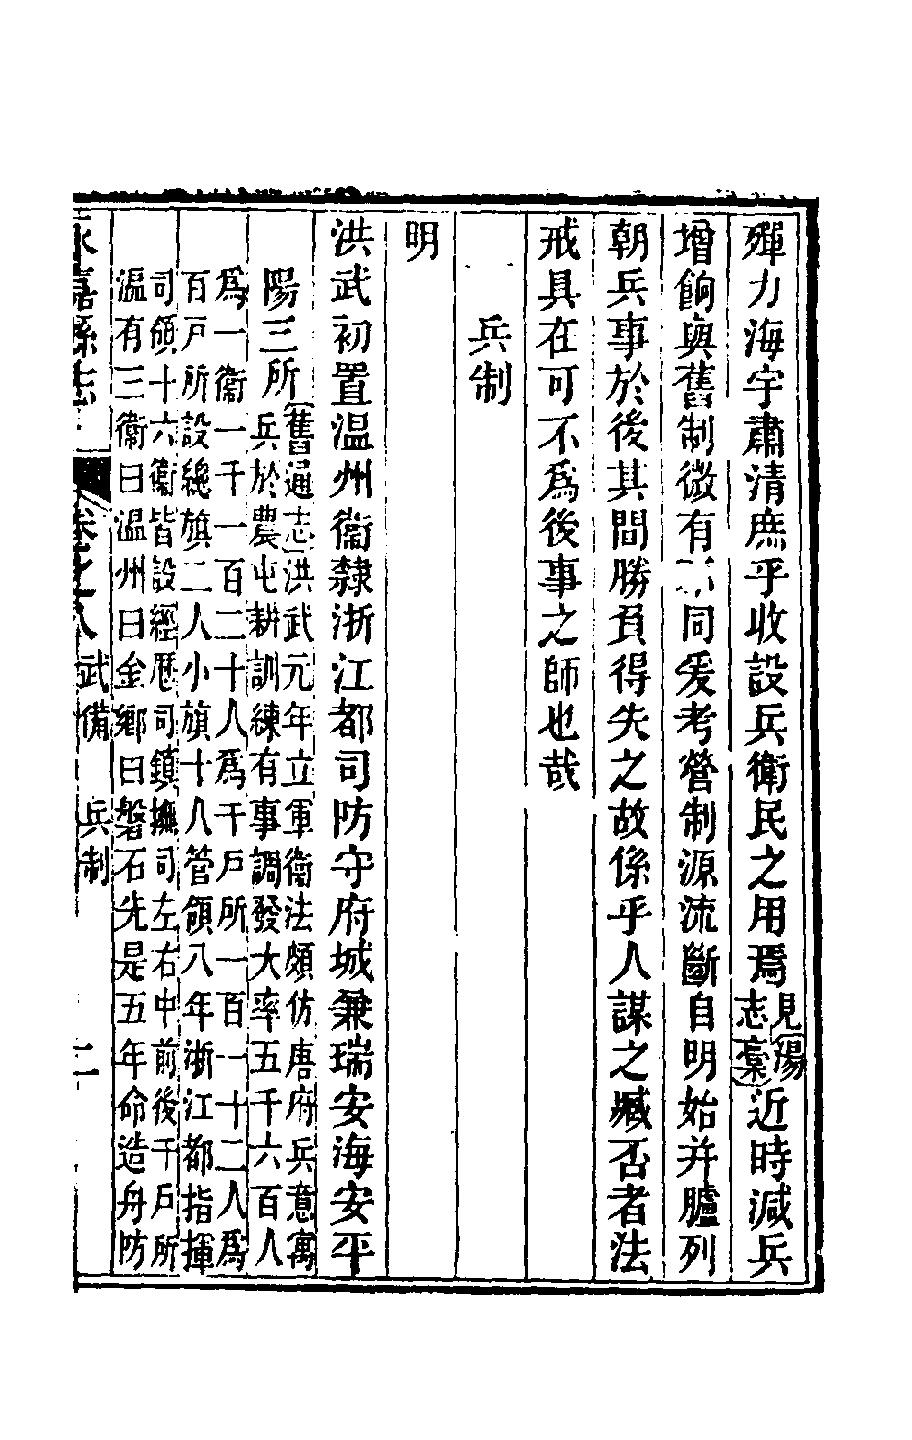 殫力海宇肅清庶乎收設兵衛民之用焉見湯志稾近時減兵
增餉與舊制微有不同爰考營制源流斷自明始并臚列
朝兵事於後其間勝負得失之故係乎人謀之臧否者法
戒具在可不爲後事之師也哉
兵制
明
洪武初置温州衞隸浙江都司防守府城兼瑞安海安平
陽三所舊通志洪武元年立軍衛法頗仿唐府兵意寓
兵於農屯耕訓練有事調發大率五千六百人
爲一衞一千一百二十人爲千戸所一百一十二人爲
百戸所設總旗二人小旗十人管領八年浙江都指揮
司領十六衞皆設經歷司鎮撫司左右中前後千戸所
温有三衞曰温州曰金鄉曰磐石先是五年命造舟防
永嘉縣志 卷之八 武備 兵制 二